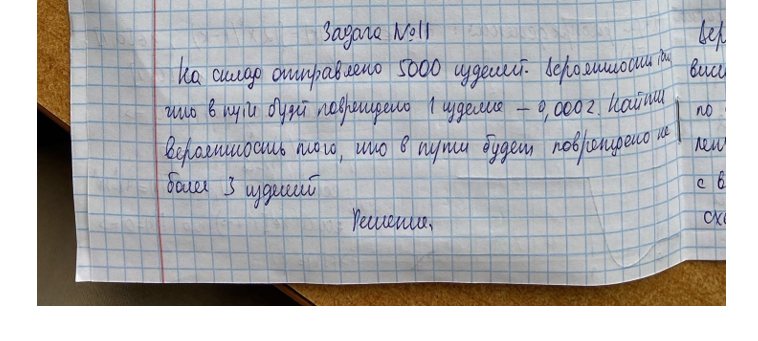 Задача №11
На склад отправлено 5000 изделий. Вероятность
что в пути будет повреждено 1 изделие – 0,0002. Найти
вероятность того, что в пути будет повреждено не
более 3 изделий
Решение.
вер
висе
по
с в
сх